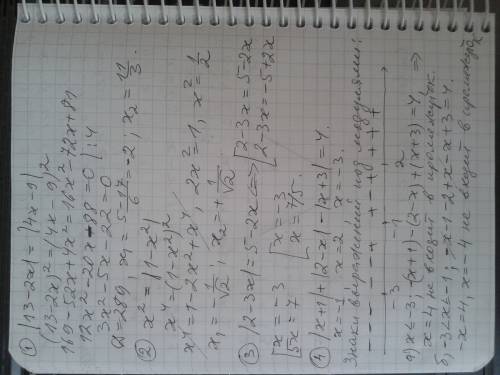 ① |13-2x| = |4x-9|
(13-2x)² = (4x-9)²
169-52x+4x² = 16x²-72x+81
12x²-20x-88=0 |:4
3x²-5x-22=0
D=289, x₁ = (5-17)/6 = -2; x₂ = 11/3.
② x² = |1-x²|
x⁴ = (1-x²)²
x⁴ = 1-2x²+x⁴, 2x²=1, x² = 1/2
x₁ = 1/√2, x₂ = + 1/√2
③ |2-3x| = 5-2x <=> [2-3x = 5-2x
[2-3x = -5+2x
[x = -3 [x = -3
[5x = 7 [x = 7/5.
④ |x+1| + |2-x| - |x+3| = 4.
x=-1 x=2 x=-3.
Знаки выражений под модулями:
-3 -1 2
а) x<-3; -(x+1)-(2-x)+(x+3)=4, =>
x=4 не входит в промежуток.
б) -3<x<-1; -x-1-2+x-x+3=4.
-x=4, x=-4 не входит в промежуток